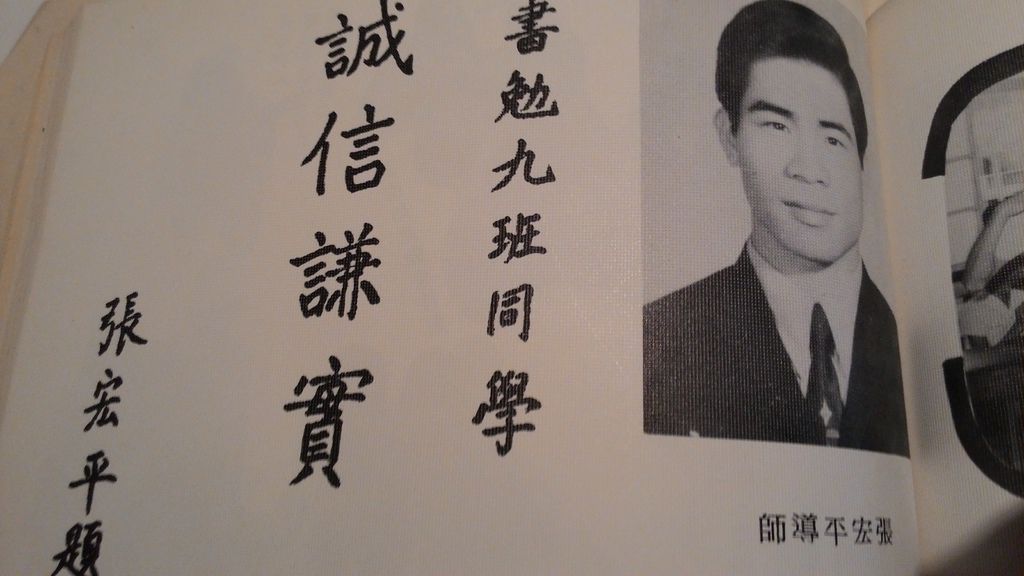 書勉九班同學
誠信謙實
張宏平題
張宏平導師